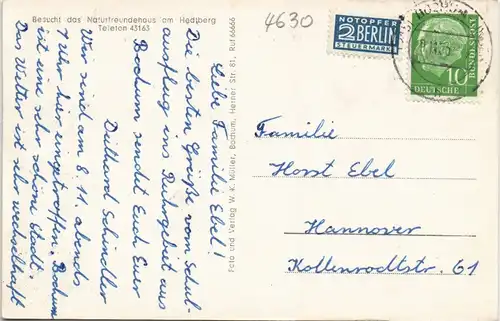 Besucht das Naturfreundehaus am Hedtberg
Telefon 43163
4630
Liebe Familie Ebel!
Die besten Grüße vom Schul-
ausflug ins Ruhrgebiet aus
Bochum sendet Euch Euer
Diethard Schindler
Wir sind am 8. 11. abends
hier eingetroffen. Bochum
ist eine sehr schöne Stadt.
Das Wetter ist sehr wechselhaft
Foto und Verlag W. K. Müller, Bochum, Herner Str. 81, Ruf 66666
NOTOPFER
2 BERLIN
STEUERMARKE
DEUTSCHE
BUNDESPOST
10
Familie
Horst Ebel
Hannover
Kollenrodtstr. 61